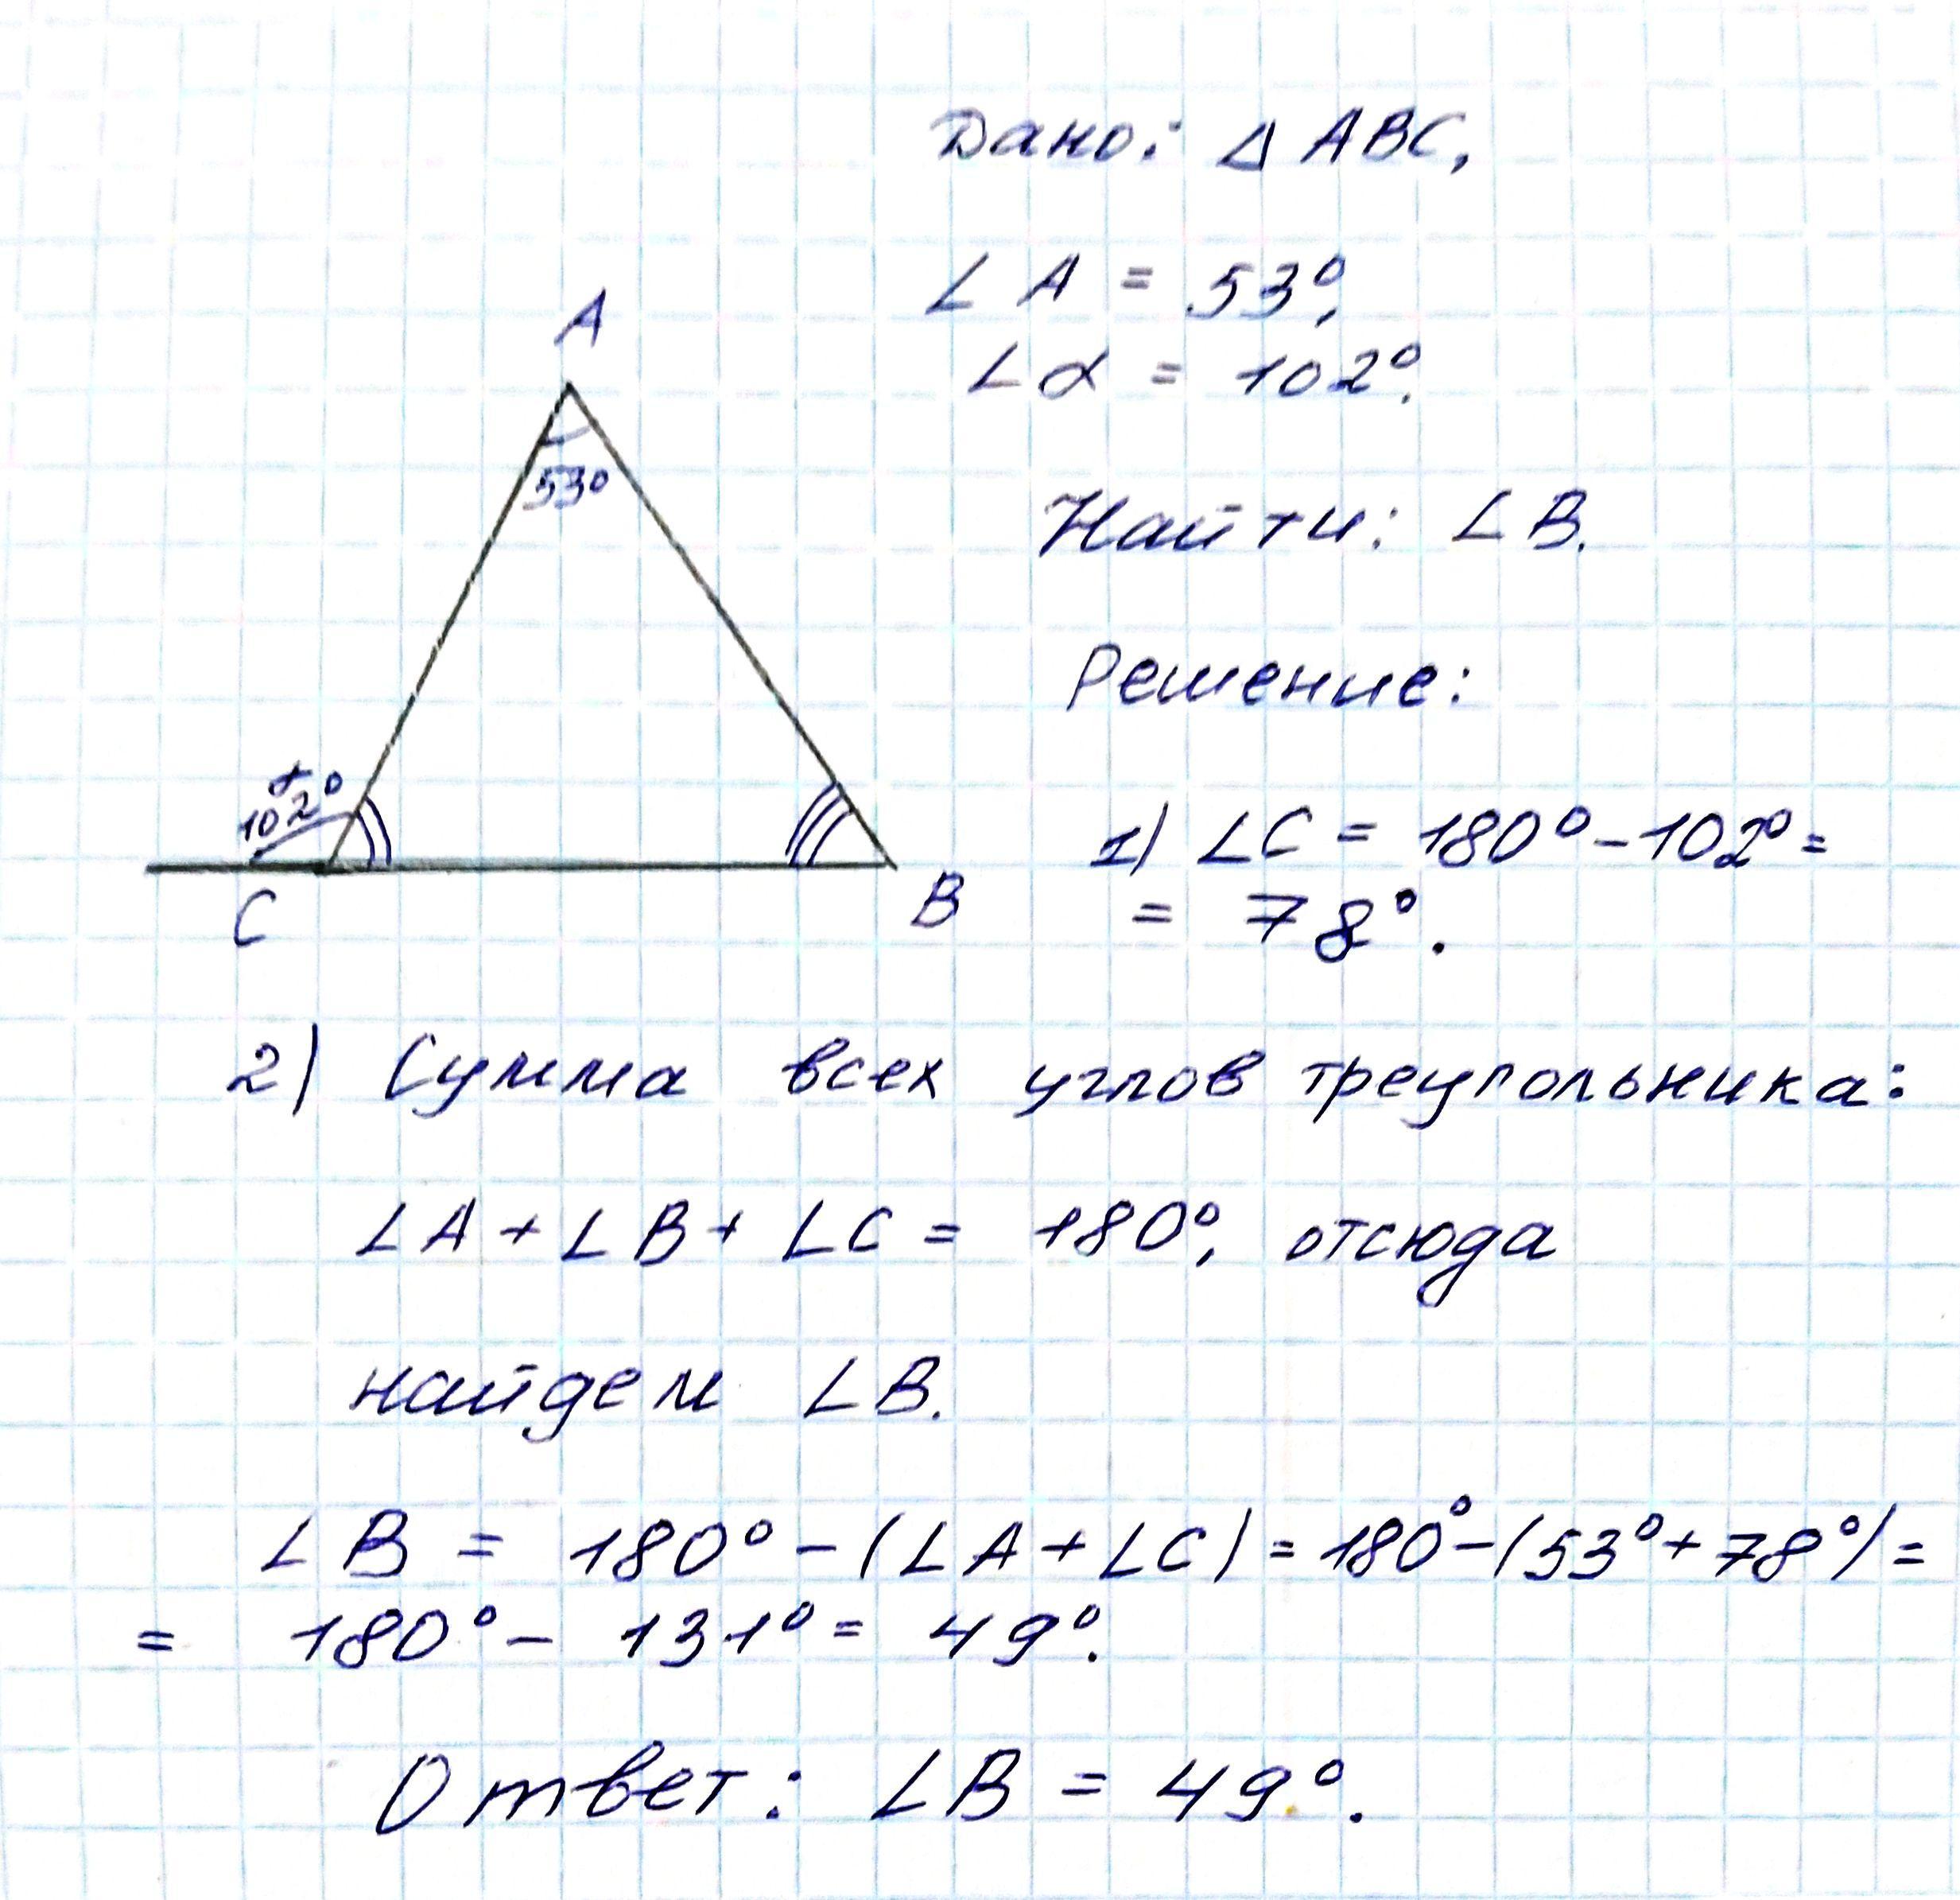 Дано: △ ABC,
∠ A = 53°,
∠ α = 102°.
Найти: ∠ B.
Решение:
A
53°
102°
C
B
1) ∠C = 180° - 102° =
= 78°.
2) Сумма всех углов треугольника:
∠A + ∠B + ∠C = 180°, отсюда
найдем ∠B.
∠B = 180° - (∠A + ∠C) = 180° - (53° + 78°) =
= 180° - 131° = 49°.
Ответ: ∠B = 49°.